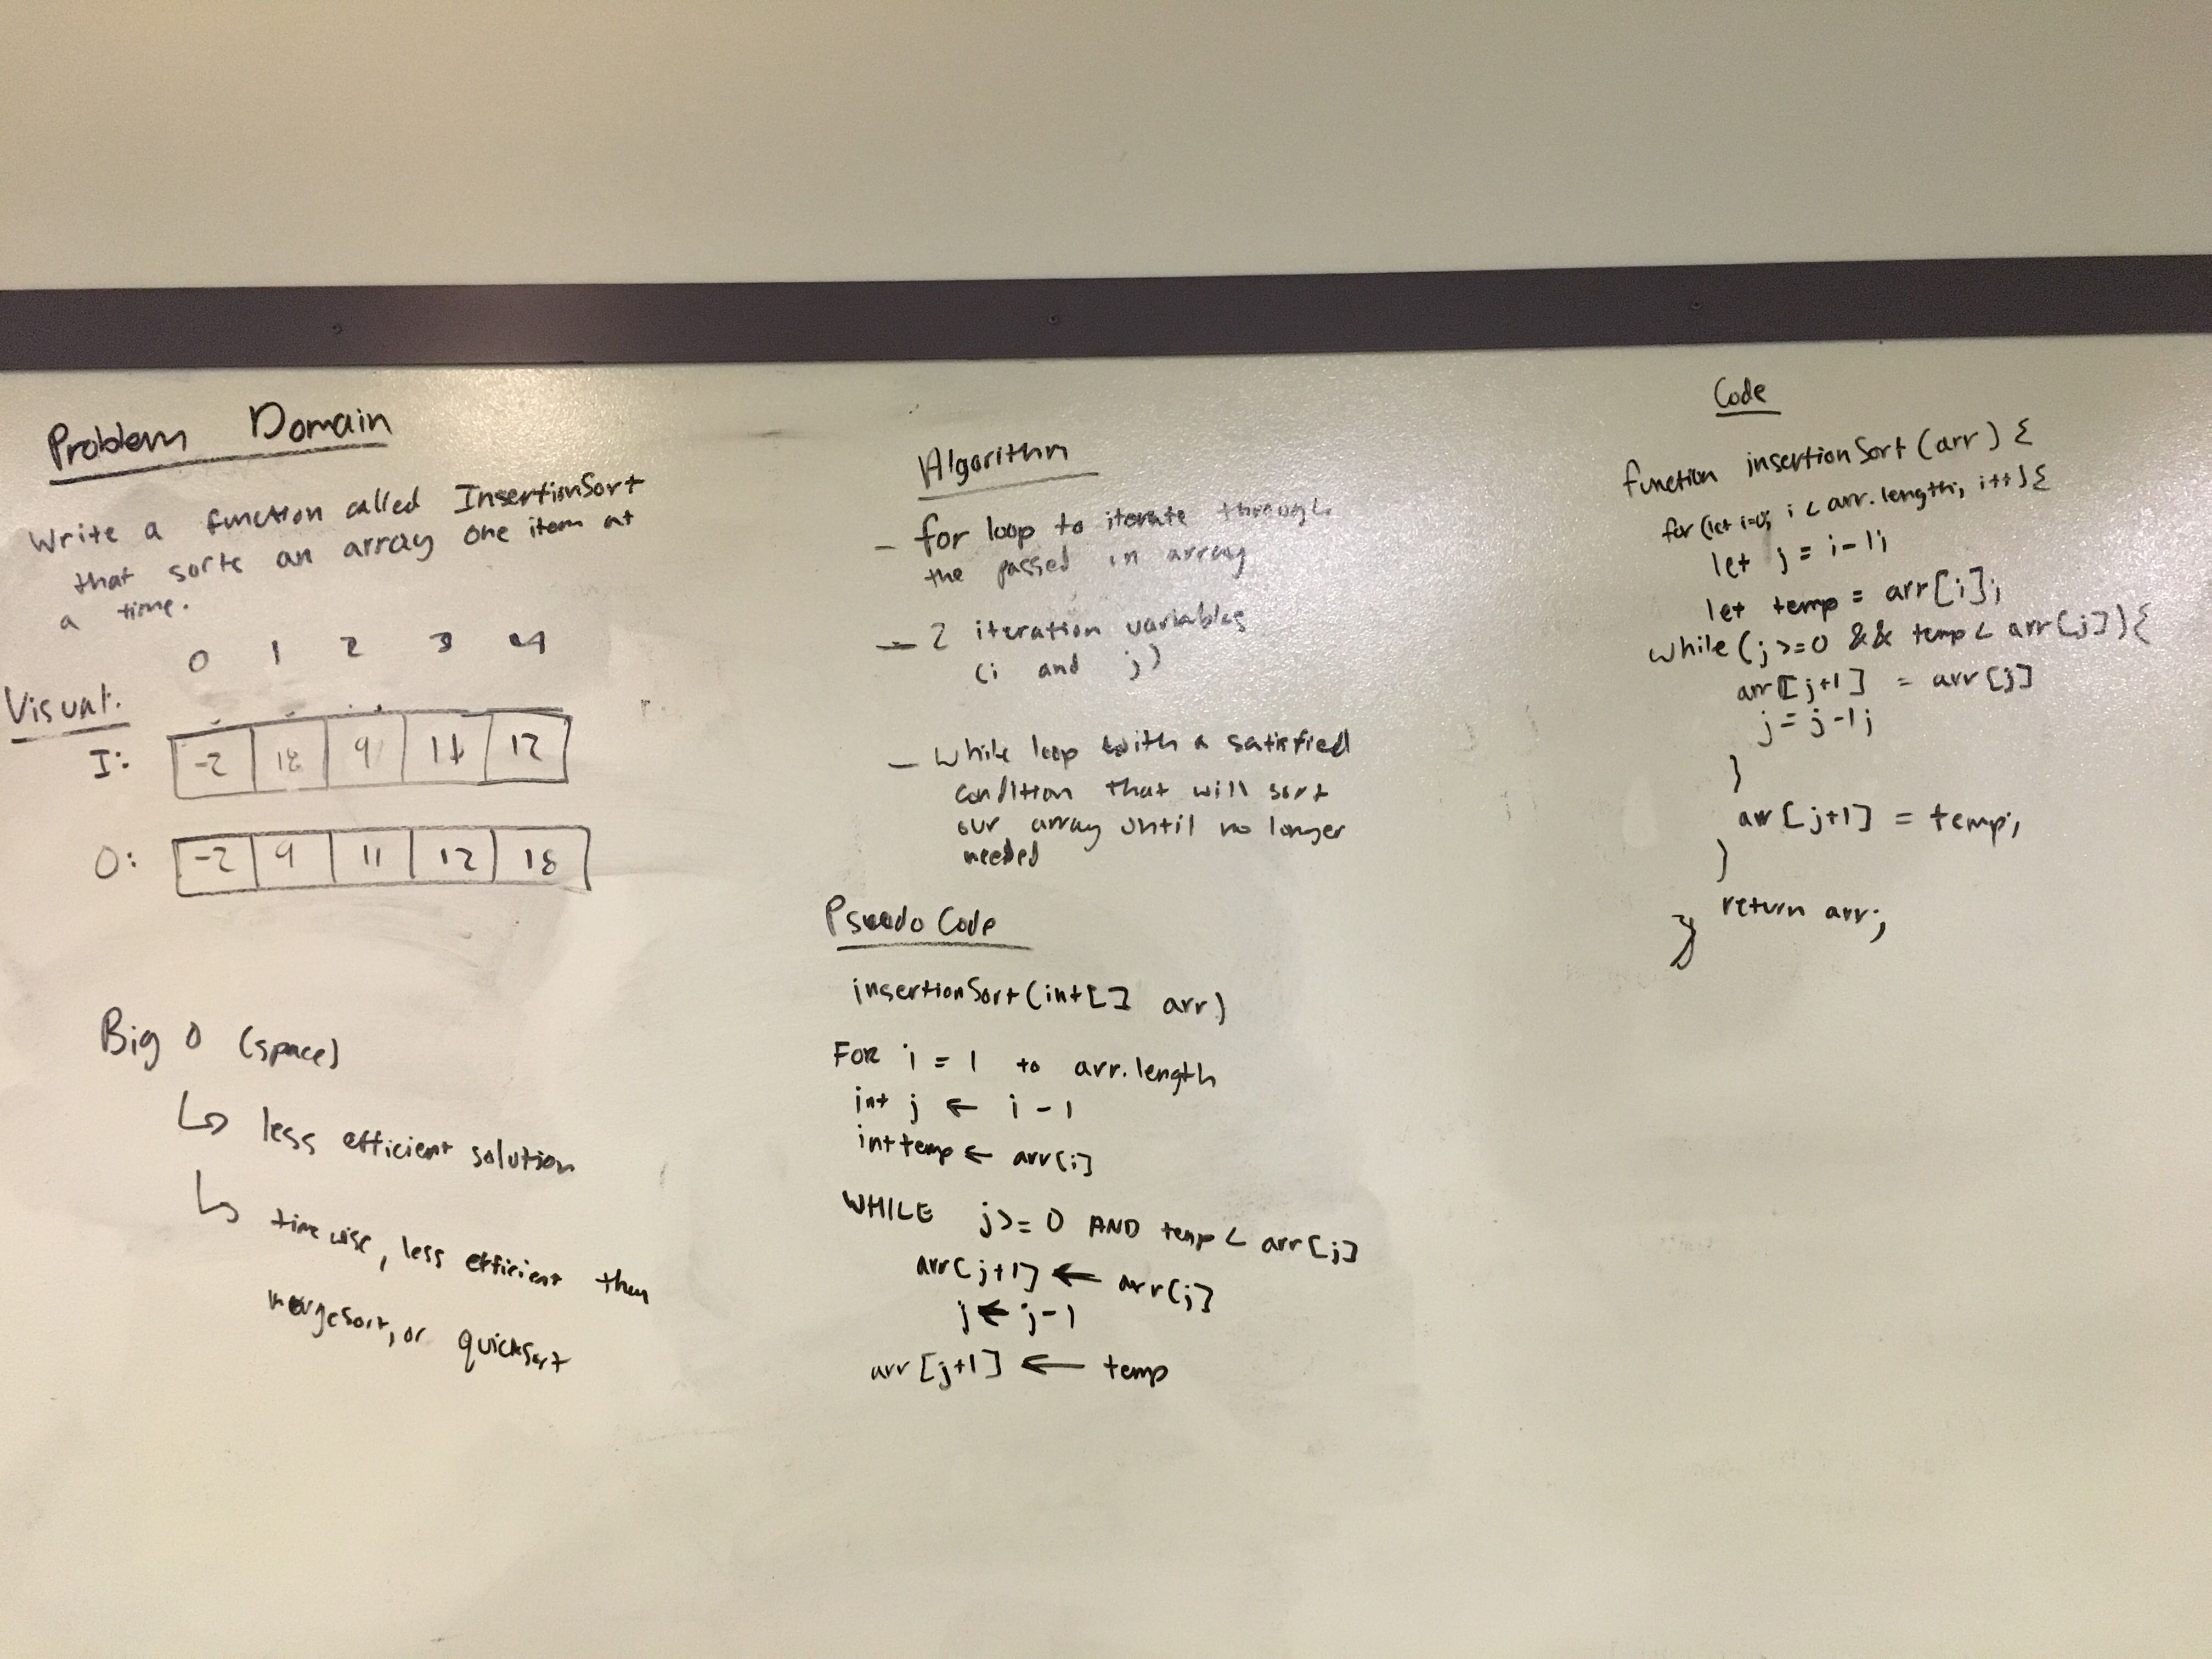 Problem Domain
Write a function called InsertionSort
that sorts an array one item at
a time.
0 1 2 3 4
Visual:
I: -2 18 9 11 12
O: -2 9 11 12 18
Big O (space)
↳ less efficient solution
↳ time wise, less efficient then
mergeSort, or quickSort
Algorithm
- for loop to iterate through
the passed in array
- 2 iteration variables
(i and j)
- While loop with a satisfied
condition that will sort
our array until no longer
needed
Pseudo Code
insertionSort(int[] arr)
FOR i = 1 to arr.length
int j ← i - 1
int temp ← arr[i]
WHILE j >= 0 AND temp < arr[j]
arr[j+1] ← arr[j]
j ← j-1
arr[j+1] ← temp
Code
function insertionSort(arr) {
for (let i=0; i < arr.length; i++) {
let j = i-1;
let temp = arr[i];
while (j >= 0 && temp < arr[j]) {
arr[j+1] = arr[j]
j = j-1;
}
arr[j+1] = temp;
}
return arr;
}